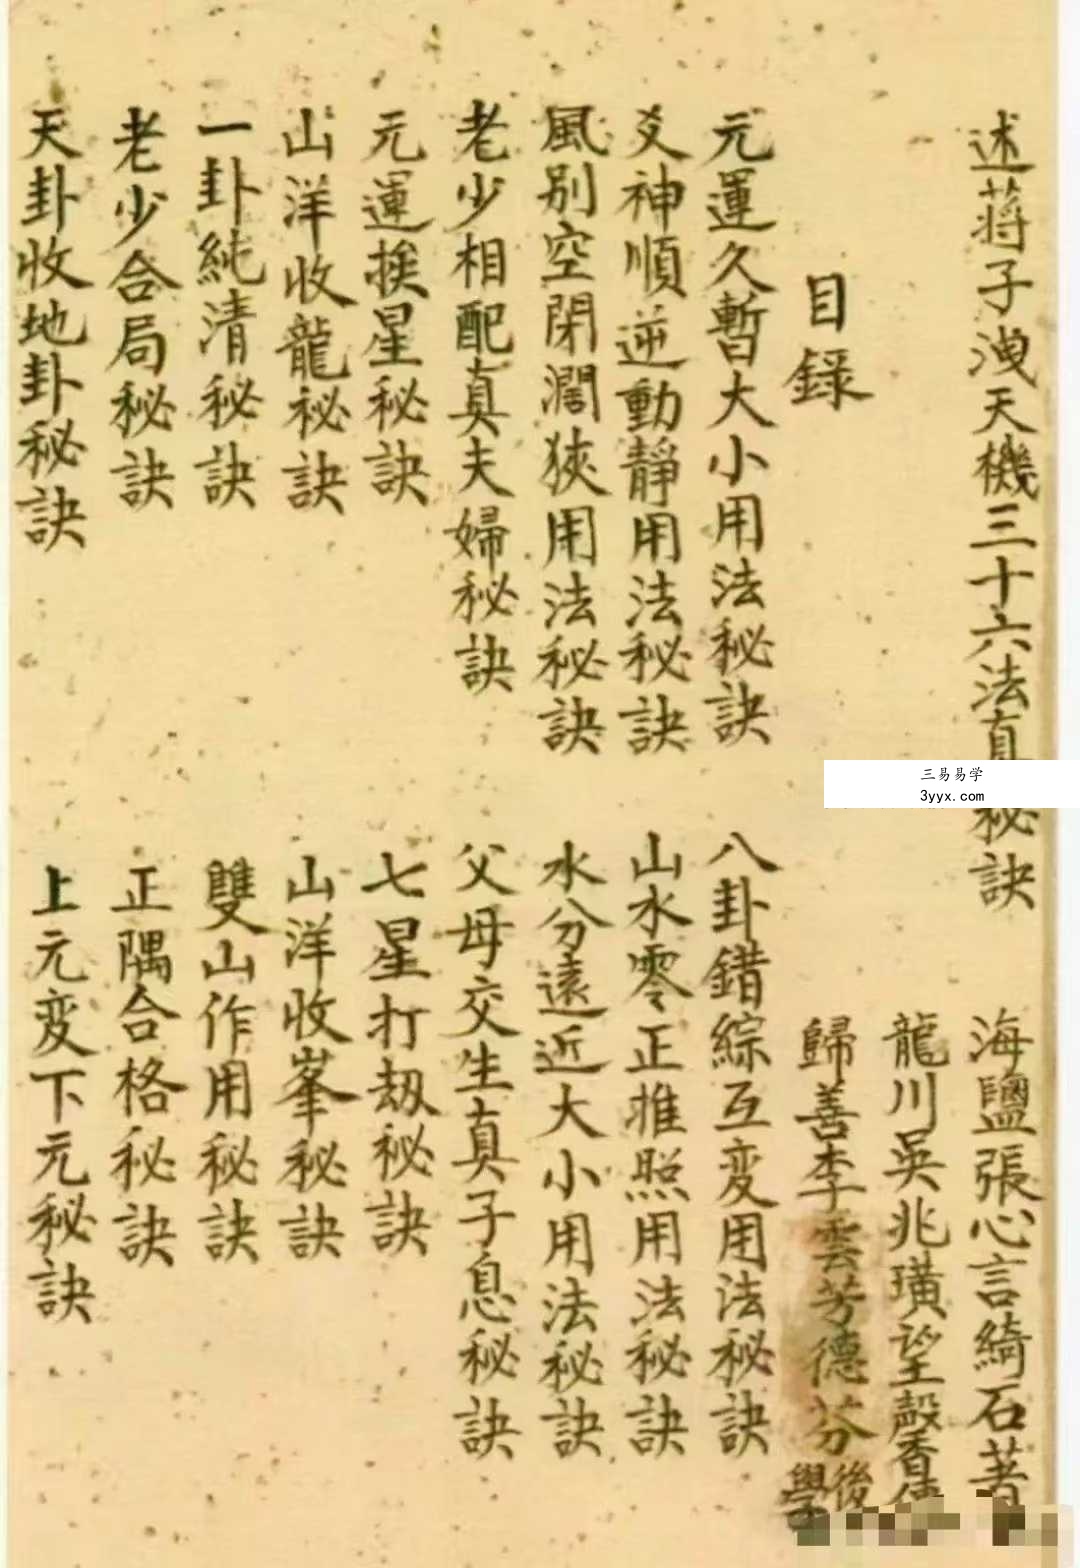 述蒋子洩天機三十六法真秘訣
海鹽張心言綺石著
龍川吳兆璜望殼香
歸善李雲芳德芬後學
目錄
元運久暫大小用法秘訣
八卦錯綜互変用法秘訣
爻神順逆動靜用法秘訣
山水零正推照用法秘訣
風別空閉濶狹用法秘訣
水分遠近大小用法秘訣
老少相配真夫婦秘訣
父母交生真子息秘訣
元運挨星秘訣
七星打劫秘訣
山洋收龍秘訣
山洋收峯秘訣
一卦純清秘訣
雙山作用秘訣
老少合局秘訣
正隅合格秘訣
天卦收地卦秘訣
上元变下元秘訣
三易易学
3yyx.com